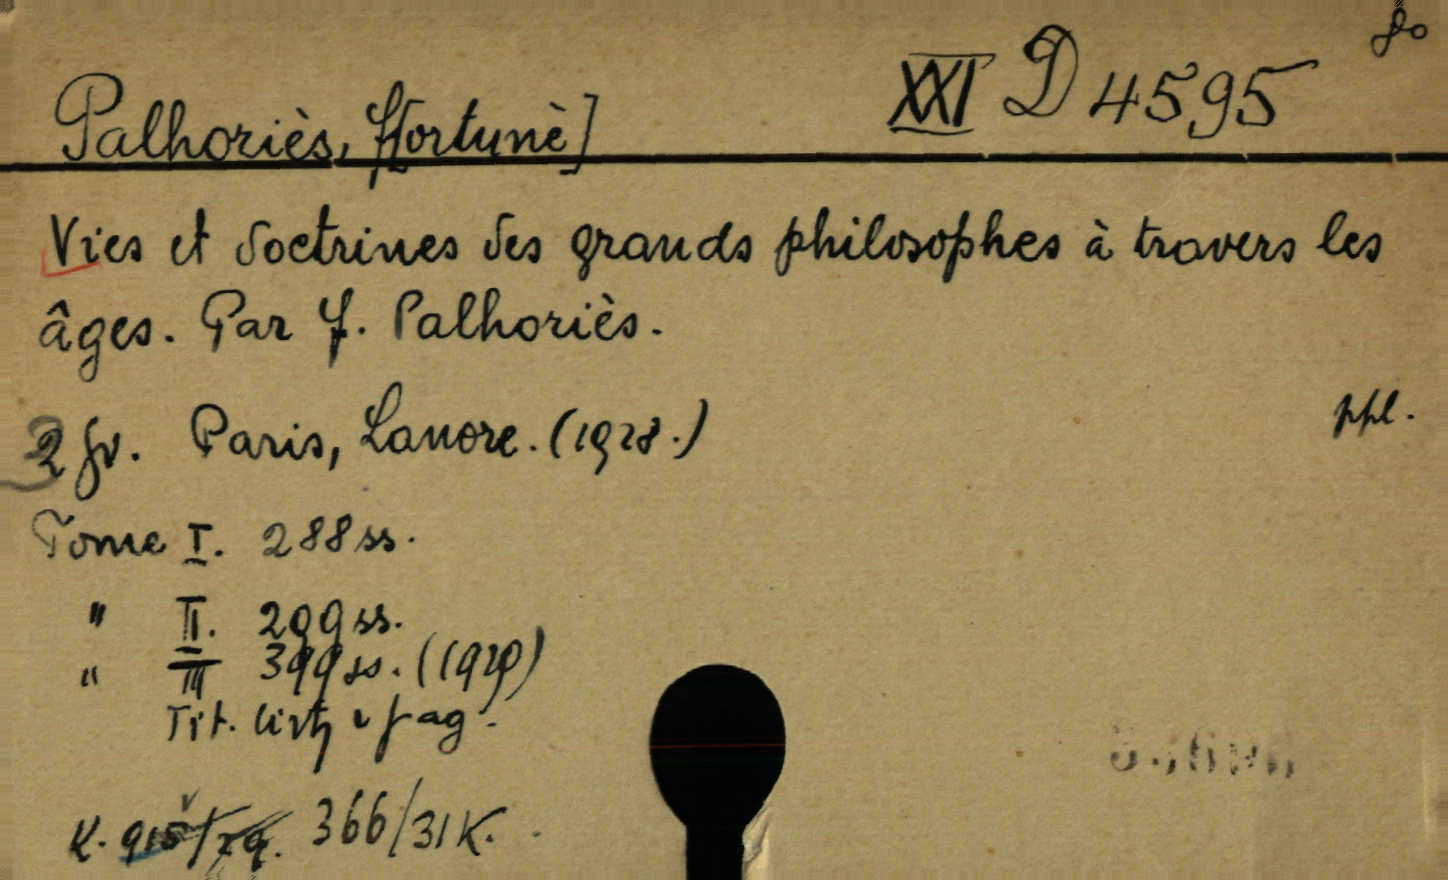 8o
XXI D 4595
Palhoriès, F[ortunè]
Vies et doctrines des grands philosophes à travers les
âges. Par F. Palhoriès.
3 sv. Paris, Lanore. (1928.)
ppl.
Tome I. 288 ss.
" II. 299 ss.
" III 399 ss. (1929)
Tit. listy i pag.
K. 366/31 K.